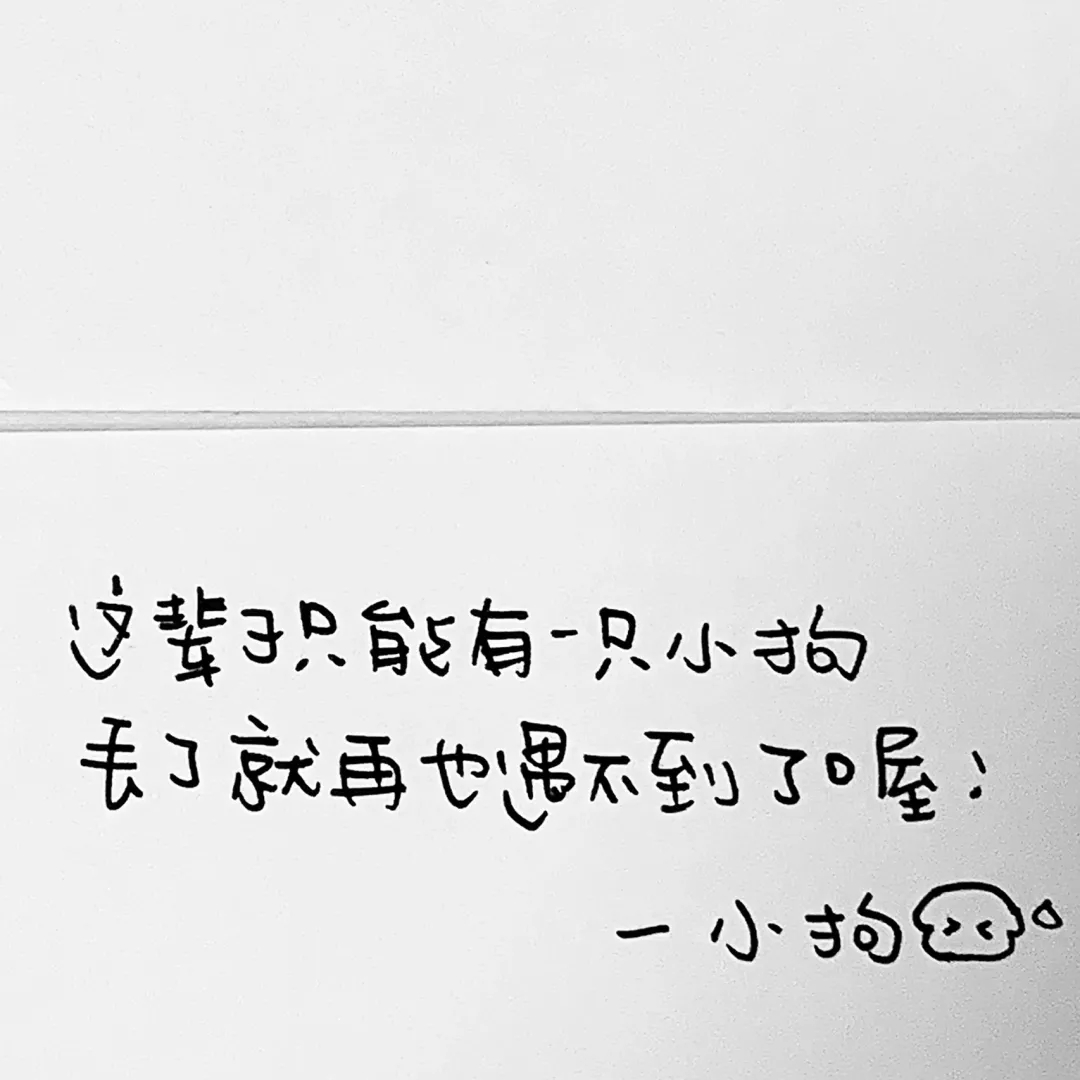 这辈子只能有一只小狗
丢了就再也遇不到了喔！
一小狗